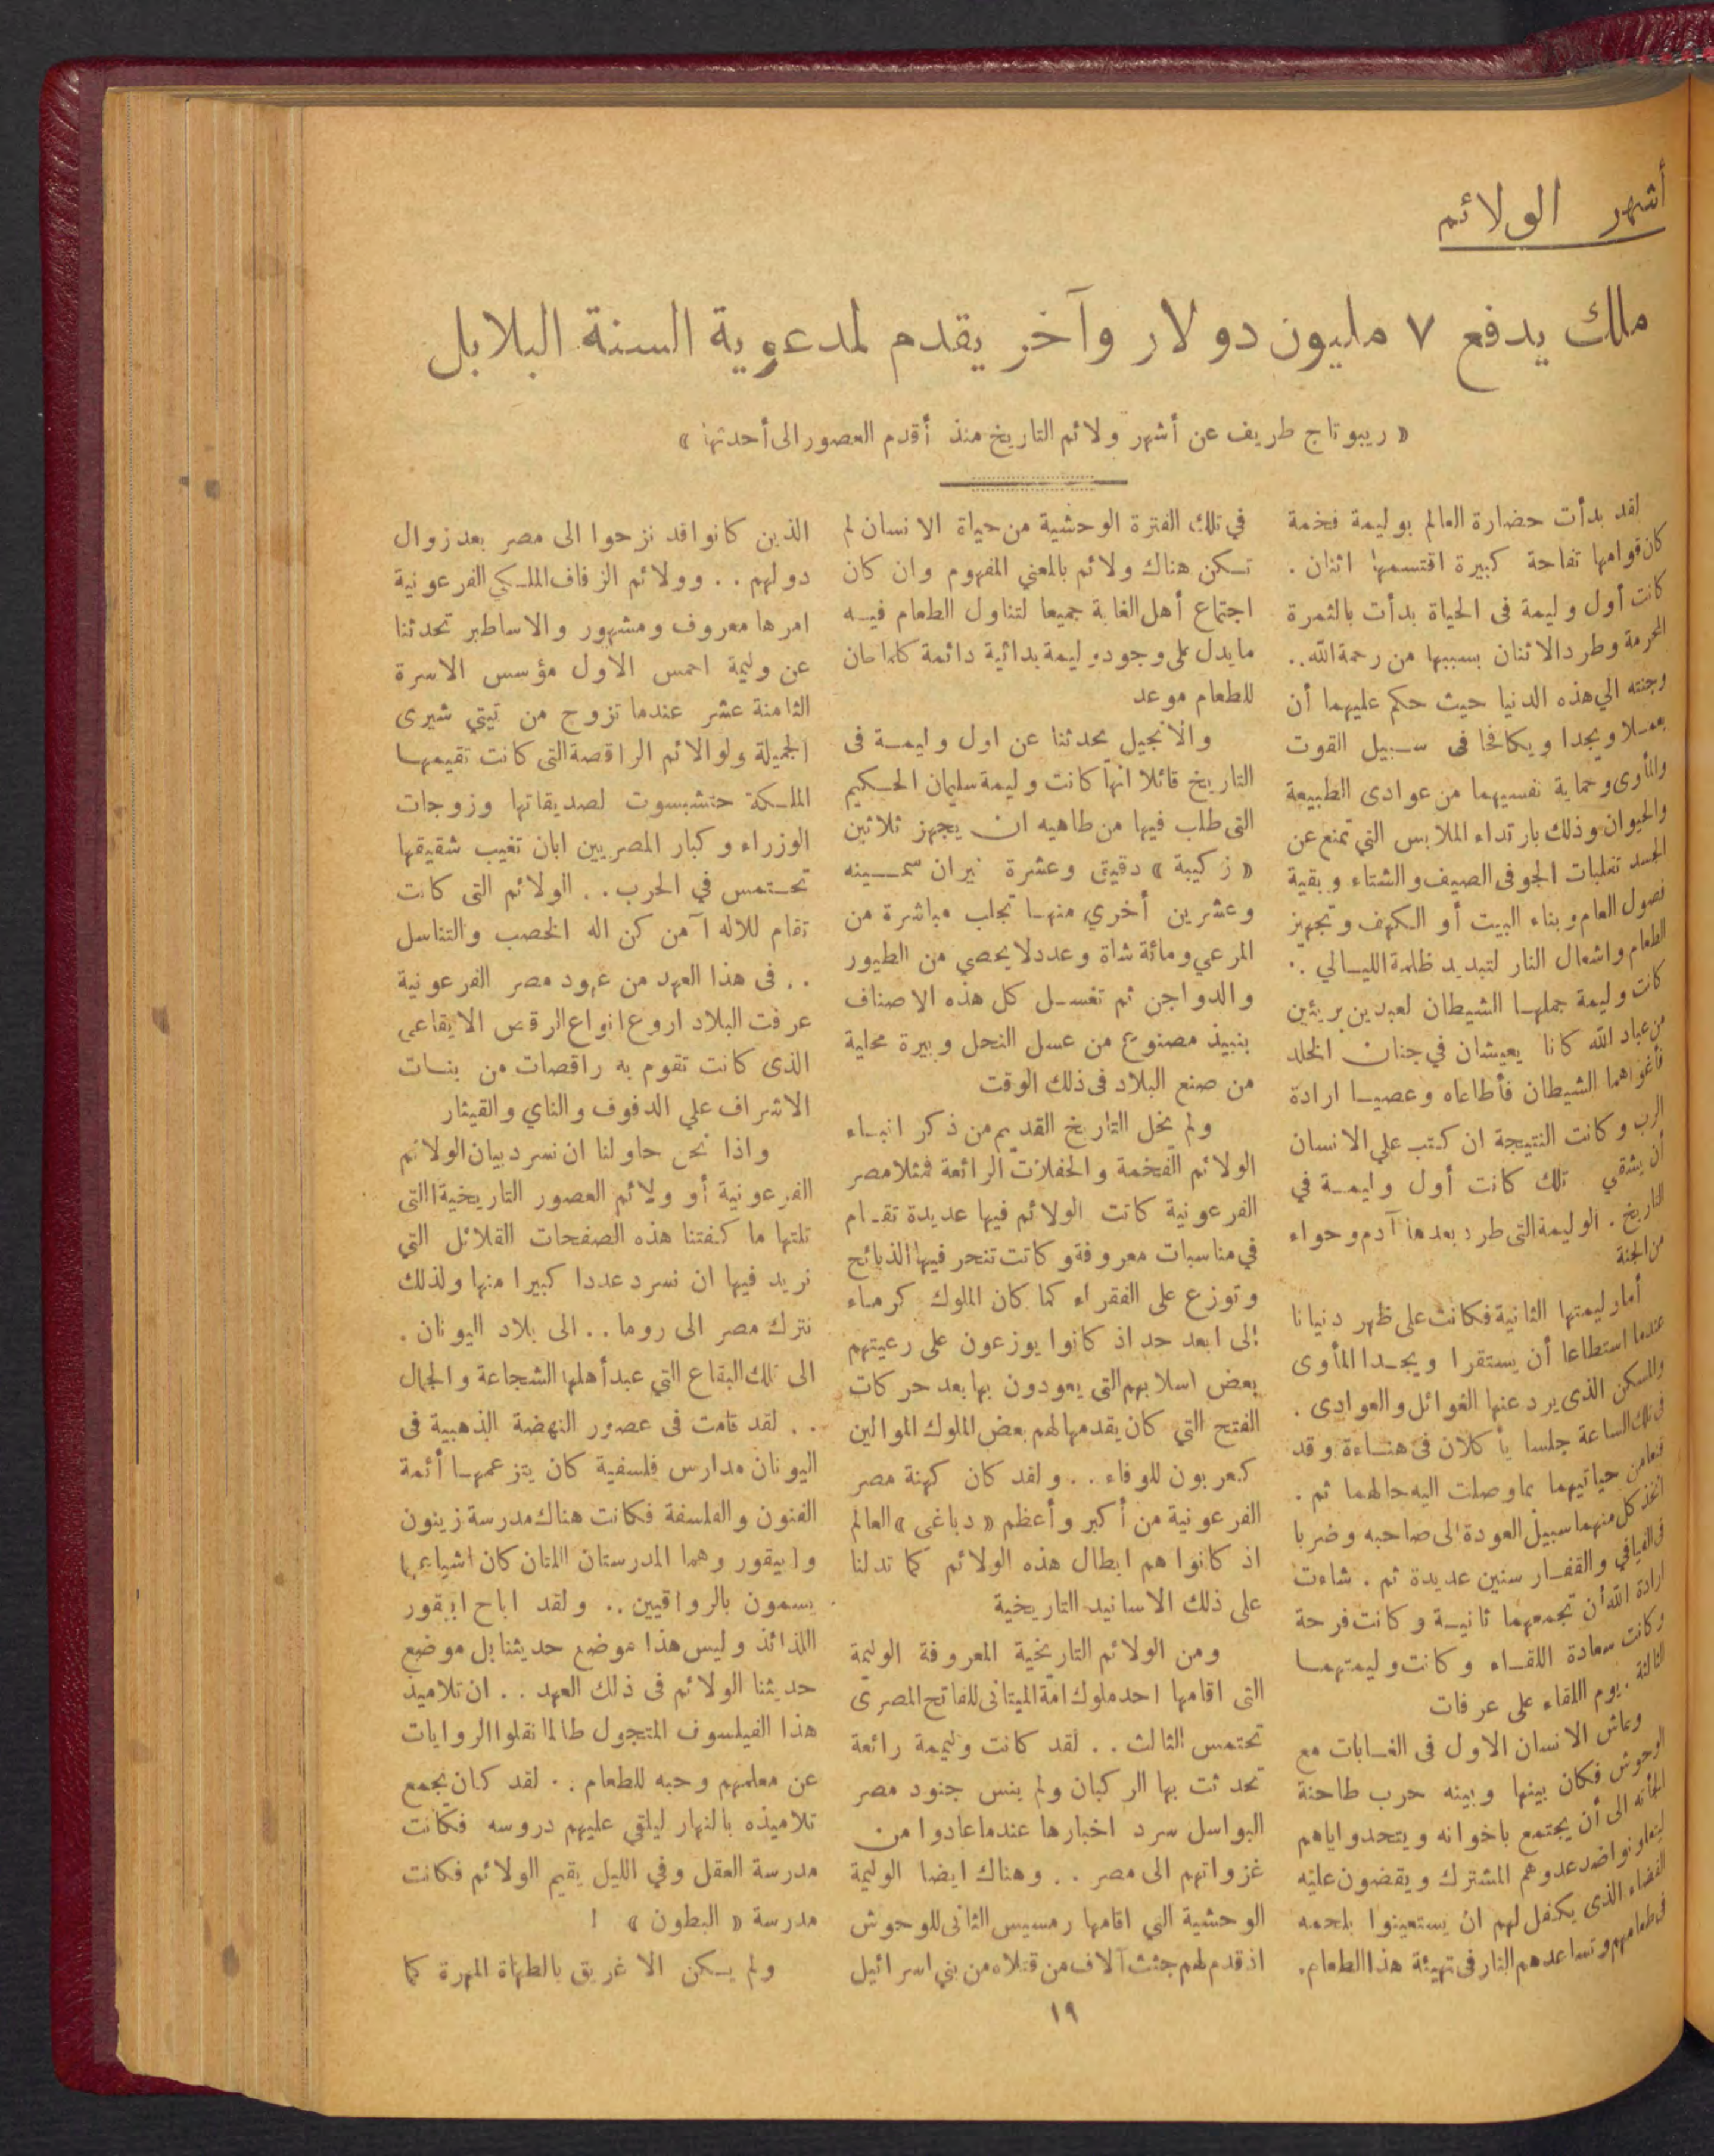 أشهر الولائم
ملك يدفع ٧ مليون دولار وآخر يقدم لمدعويه السنة البلابل
« ريبوتاج طريف عن أشهر ولائم التاريخ منذ أقدم العصور الى أحدثها »
لقد بدأت حضارة العالم بوليمة فخمة
كان قوامها تفاحة كبيرة اقتسمها اثنان .
كانت أول وليمة فى الحياة بدأت بالثمرة
المحرمة وطرد الاثنان بسببها من رحمة الله..
وجنته الي هذه الدنيا حيث حكم عليهما أن
يعملا ويجدا ويكافحا فى سبيل القوت
والمأوى وحماية نفسيهما من عوادى الطبيعة
والحيوان وذلك بارتداء الملابس التي تمنع عن
الجسد تقلبات الجو فى الصيف والشتاء وبقية
فصول العام وبناء البيت أو الكهف وتجهيز
الطعام واشعال النار لتبديد ظلمة الليالي ..
كانت وليمة جملها الشيطان لعبدين بريئين
من عباد الله كانا يعيشان في جنان الخلد
فأغواهما الشيطان فأطاعاه وعصيا ارادة
الرب وكانت النتيجة ان كتب علي الانسان
أن يشقي تلك كانت أول وليمة في
التاريخ . الوليمة التى طرد بعدها آدم وحواء
من الجنة
أما وليمتها الثانية فكانت على ظهر دنيانا
عندما استطاعا أن يستقرا ويجدا المأوى
والمسكن الذى يرد عنها الغوائل والعوادى .
فى تلك الساعة جلسا يأكلان فى هناءة وقد
حياتيهما بما وصلت اليه حالهما ثم .
اتخذ كل منهما سبيل العودة الى صاحبه وضربا
فى الفيافي والقفار سنين عديدة ثم . شاءت
ارادة الله أن تجمعهما ثانية وكانت فرحة
وكانت سعادة اللقاء وكانت وليمتهما
الثالثة . يوم اللقاء على عرفات
وعاش الانسان الاول فى الغابات مع
الوحوش فكان بينها وبينه حرب طاحنة
الجأته الى أن يجتمع باخوانه ويتحد واياهم
ليتعاونوا ضد عدوهم المشترك ويقضون عليه
القضاء الذى يكفل لهم ان يستعينوا بلحمه
فى طعامهم وتساعدهم النار فى تهيئة هذا الطعام.
في تلك الفترة الوحشية من حياة الانسان لم
تكن هناك ولائم بالمعني المفهوم وان كان
اجتماع أهل الغابة جميعا لتناول الطعام فيه
ما يدل على وجود وليمة بدائية دائمة كلما حان
للطعام موعد
والانجيل يحدثنا عن اول وليمة فى
التاريخ قائلا انها كانت وليمة سليمان الحكيم
التى طلب فيها من طاهيه ان يجهز ثلاثين
« زكيبة » دقيق وعشرة ثيران سمينه
وعشرين أخري منها تجلب مباشرة من
المرعي ومائة شاة وعدد لا يحصي من الطيور
والدواجن ثم تغسل كل هذه الاصناف
بنبيذ مصنوع من عسل النحل وبيرة محلية
من صنع البلاد فى ذلك الوقت
ولم يخل التاريخ القديم من ذكر انباء
الولائم الفخمة والحفلات الرائعة فمثلا مصر
الفرعونية كانت الولائم فيها عديدة تقام
في مناسبات معروفة وكانت تنحر فيها الذبائح
وتوزع على الفقراء كما كان الملوك كرماء
الى ابعد حد اذ كانوا يوزعون على رعيتهم
بعض اسلابهم التى يعودون بها بعد حركات
الفتح التي كان يقدمها لهم بعض الملوك الموالين
كعربون للوفاء . . ولقد كان كهنة مصر
الفرعونية من أكبر وأعظم « دباغى » العالم
اذ كانوا هم ابطال هذه الولائم كما تدلنا
على ذلك الاسانيد التاريخية
ومن الولائم التاريخية المعروفة الوليمة
التى اقامها احد ملوك امة الميتانى للفاتح المصرى
تحتمس الثالث . . لقد كانت وليمة رائعة
تحدثت بها الركبان ولم ينس جنود مصر
البواسل سرد اخبارها عندما عادوا من
غزواتهم الى مصر . . وهناك ايضا الوليمة
الوحشية التي اقامها رمسيس الثانى للوحوش
اذ قدم لهم جثث آلاف من قتلاه من بني اسرائيل
الذين كانوا قد نزحوا الى مصر بعد زوال
دولهم . . وولائم الزفاف الملكي الفرعونية
امرها معروف ومشهور والاساطير تحدثنا
عن وليمة احمس الاول مؤسس الاسرة
الثامنة عشر عندما تزوج من تيتي شيرى
الجميلة ولو الائم الراقصة التى كانت تقيمها
الملكة حتشبسوت لصديقاتها وزوجات
الوزراء وكبار المصريين ابان تغيب شقيقها
تحتمس في الحرب . . الولائم التى كانت
تقام للاله آمن كن اله الخصب والتناسل
. . فى هذا العهد من عهود مصر الفرعونية
عرفت البلاد اروع انواع الرقص الايقاعى
الذى كانت تقوم به راقصات من بنات
الاشراف علي الدفوف والناي والقيثار
واذا نحن حاولنا ان نسرد بيان الولائم
الفرعونية أو ولائم العصور التاريخية التى
تلتها ما كفتنا هذه الصفحات القلائل التي
نريد فيها ان نسرد عددا كبيرا منها ولذلك
نترك مصر الى روما . . الى بلاد اليونان .
الى تلك البقاع التي عبد أهلها الشجاعة والجمال
. . لقد قامت فى عصور النهضة الذهبية فى
اليونان مدارس فلسفية كان يتزعمها أئمة
الفنون والفلسفة فكانت هناك مدرسة زينون
وابيقور وهما المدرستان اللتان كان اشياعهما
يسمون بالرواقيين .. ولقد اباح ابيقور
اللذائذ وليس هذا موضع حديثنا بل موضع
حديثنا الولائم فى ذلك العهد . . ان تلاميذ
هذا الفيلسوف المتجول طالما نقلوا الروايات
عن معلمهم وحبه للطعام . . لقد كان يجمع
تلاميذه بالنهار ليلقي عليهم دروسه فكانت
مدرسة العقل وفي الليل يقيم الولائم فكانت
مدرسة « البطون » !
ولم يكن الاغريق بالطهاة المهرة كما
١٩